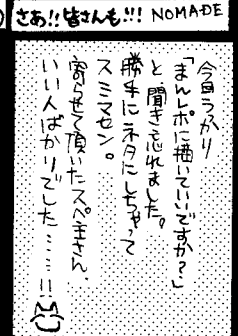 さあ!!皆さんも!!! NOMADE
今回うっかり
「まんレポに描いていいですか?」
と聞き忘れました。
勝手にネタにしちゃって
スミマセン。
寄らせて頂いたスペ主さん、
いい人ばかりでした……!!